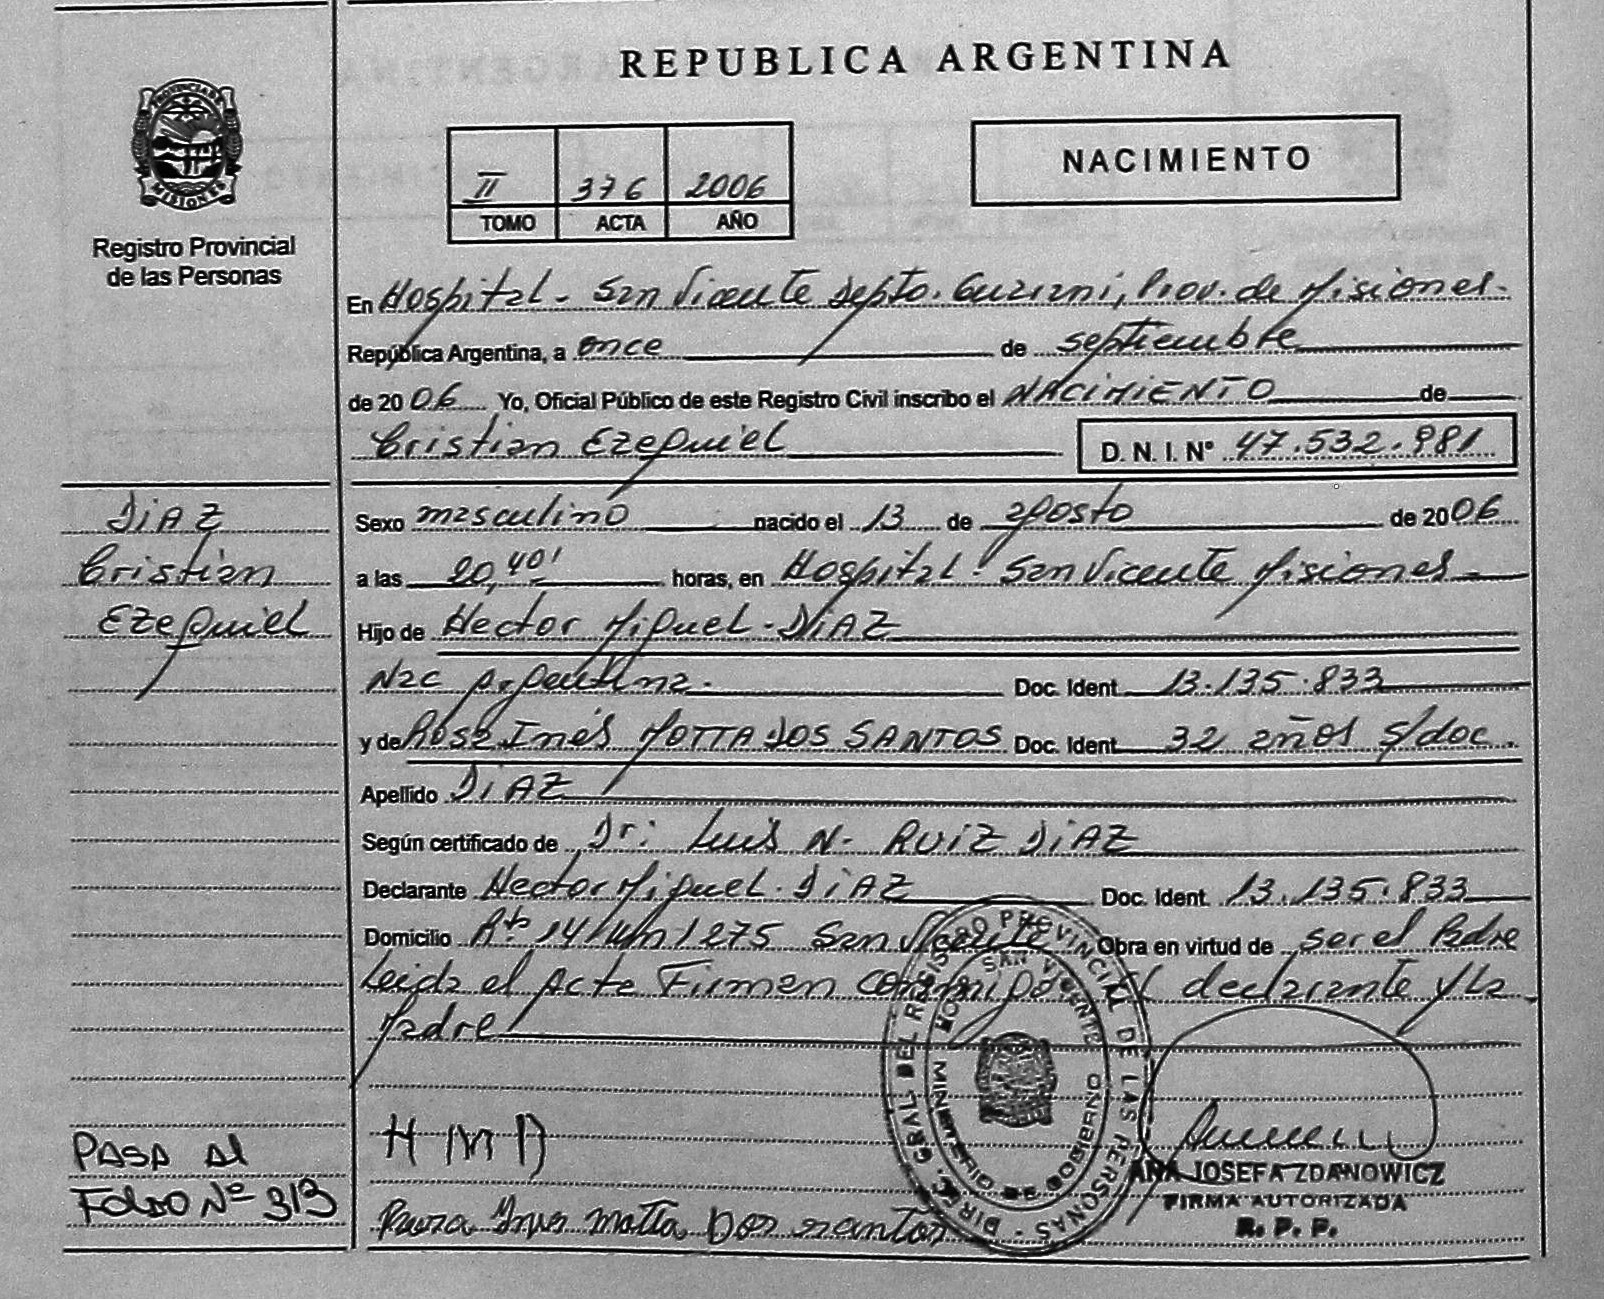 REPUBLICA ARGENTINA
PROVINCIA DE
MISIONES
Registro Provincial
de las Personas
II 376 2006
TOMO ACTA AÑO
NACIMIENTO
En Hospital - San Vicente Depto. Guarani, Prov. de Misiones.
República Argentina, a once de septiembre
de 2006 Yo, Oficial Público de este Registro Civil inscribo el NACIMIENTO de
Cristian Ezequiel D. N. I. Nº 47.532.981
DiAZ
Cristian
Ezequiel
Sexo masculino nacido el 13 de agosto de 2006
a las 20,40' horas, en Hospital - San Vicente Misiones
Hijo de Hector Miguel - DiAZ
Nac Argentina. Doc. Ident 13.135.833
y de Rosa Inés MOTTA DOS SANTOS Doc. Ident 32 años s/doc.
Apellido DiAZ
Según certificado de Dr: Luis N. RUiZ DiAZ
Declarante Hector Miguel - DiAZ Doc. Ident. 13.135.833
Domicilio Rta 14 km 1275 San Vicente Obra en virtud de ser el Padre
Leida el Acta Firman conmigo el declarante y la
Madre
H M D
Inés Motta Dos santos
PASA Al
Folio Nº 313
DIREC. GRAL. DEL REGISTRO PROVINCIAL DE LAS PERSONAS
SAN VICENTE
MINISTERIO DE GOBIERNO
ANA JOSEFA ZDANOWICZ
FIRMA AUTORIZADA
R. P. P.